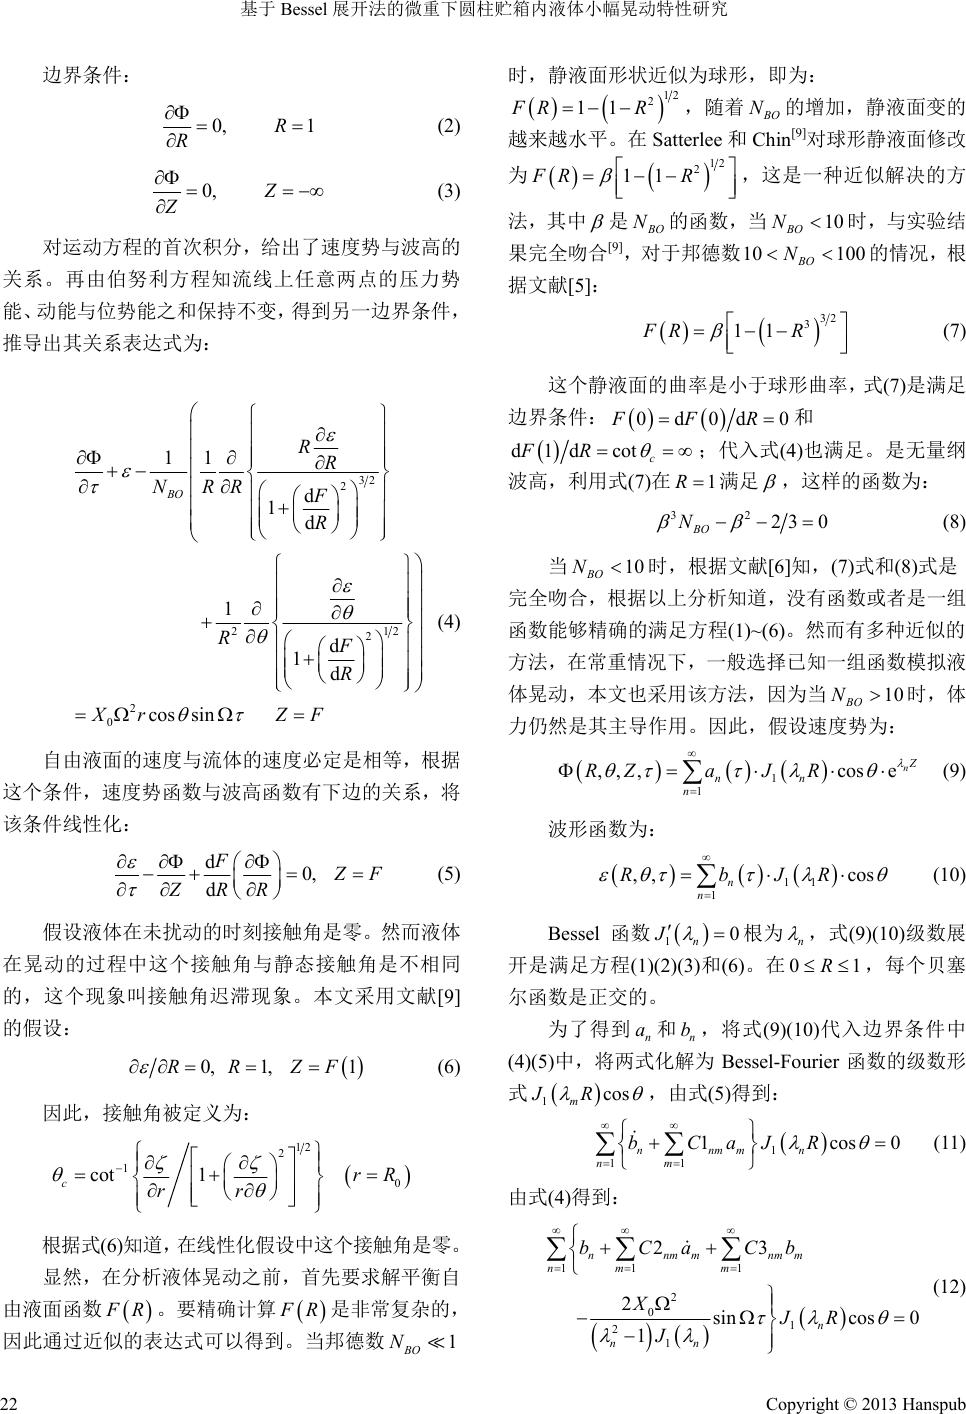 基于 Bessel 展开法的微重下圆柱贮箱内液体小幅晃动特性研究
边界条件：
∂Φ/∂R=0, R=1 (2)
∂Φ/∂Z=0, Z=−∞ (3)
对运动方程的首次积分，给出了速度势与波高的
关系。再由伯努利方程知流线上任意两点的压力势
能、动能与位势能之和保持不变，得到另一边界条件，
推导出其关系表达式为：
∂Φ/∂τ+ε−1/N_BO(1/R ∂/∂R{R ∂ε/∂R/[1+(dF/dR)²]^{3/2}}
+1/R² ∂/∂θ{∂ε/∂θ/[1+(dF/dR)²]^{1/2}}) (4)
=X₀Ω²r cosθ sinΩτ Z=F
自由液面的速度与流体的速度必定是相等，根据
这个条件，速度势函数与波高函数有下边的关系，将
该条件线性化：
∂ε/∂τ−∂Φ/∂Z+dF/dR(∂Φ/∂R)=0, Z=F (5)
假设液体在未扰动的时刻接触角是零。然而液体
在晃动的过程中这个接触角与静态接触角是不相同
的，这个现象叫接触角迟滞现象。本文采用文献[9]
的假设：
∂ε/∂R=0, R=1, Z=F(1) (6)
因此，接触角被定义为：
θ_c=cot⁻¹{∂ζ/∂r/[1+(∂ζ/r∂θ)²]^{1/2}} (r=R₀)
根据式(6)知道，在线性化假设中这个接触角是零。
显然，在分析液体晃动之前，首先要求解平衡自
由液面函数F(R)。要精确计算F(R)是非常复杂的，
因此通过近似的表达式可以得到。当邦德数N_BO≪1
时，静液面形状近似为球形，即为：
F(R)=1−(1−R²)^{1/2}，随着N_BO的增加，静液面变的
越来越水平。在 Satterlee 和 Chin[9]对球形静液面修改
为F(R)=β[1−(1−R²)^{1/2}]，这是一种近似解决的方
法，其中β是N_BO的函数，当N_BO<10时，与实验结
果完全吻合[9]，对于邦德数10<N_BO<100的情况，根
据文献[5]：
F(R)=β[1−(1−R³)^{3/2}] (7)
这个静液面的曲率是小于球形曲率，式(7)是满足
边界条件：F(0)=dF(0)/dR=0和
dF(1)/dR=cotθ_c=∞；代入式(4)也满足。是无量纲
波高，利用式(7)在R=1满足β，这样的函数为：
β³N_BO−β²−2/3=0 (8)
当N_BO<10时，根据文献[6]知，(7)式和(8)式是
完全吻合，根据以上分析知道，没有函数或者是一组
函数能够精确的满足方程(1)~(6)。然而有多种近似的
方法，在常重情况下，一般选择已知一组函数模拟液
体晃动，本文也采用该方法，因为当N_BO>10时，体
力仍然是其主导作用。因此，假设速度势为：
Φ(R,θ,Z,τ)=∑_{n=1}^∞ a_n(τ)·J₁(λ_nR)·cosθ·e^{λ_nZ} (9)
波形函数为：
ε(R,θ,τ)=∑_{n=1}^∞ b_n(τ)·J₁(λ₁R)·cosθ (10)
Bessel 函数J₁′(λ_n)=0根为λ_n，式(9)(10)级数展
开是满足方程(1)(2)(3)和(6)。在0≤R≤1，每个贝塞
尔函数是正交的。
为了得到a_n和b_n，将式(9)(10)代入边界条件中
(4)(5)中，将两式化解为 Bessel-Fourier 函数的级数形
式J₁(λ_mR)cosθ，由式(5)得到：
∑_{n=1}^∞{ḃ_n+∑_{m=1}^∞C1_{nm}a_m}J₁(λ_nR)cosθ=0 (11)
由式(4)得到：
∑_{n=1}^∞{b_n+∑_{m=1}^∞C2_{nm}ȧ_m+∑_{m=1}^∞C3_{nm}b_m
−2X₀Ω²/((λ_n²−1)J₁(λ_n)) sinΩτ}J₁(λ_nR)cosθ=0 (12)
22 Copyright © 2013 Hanspub